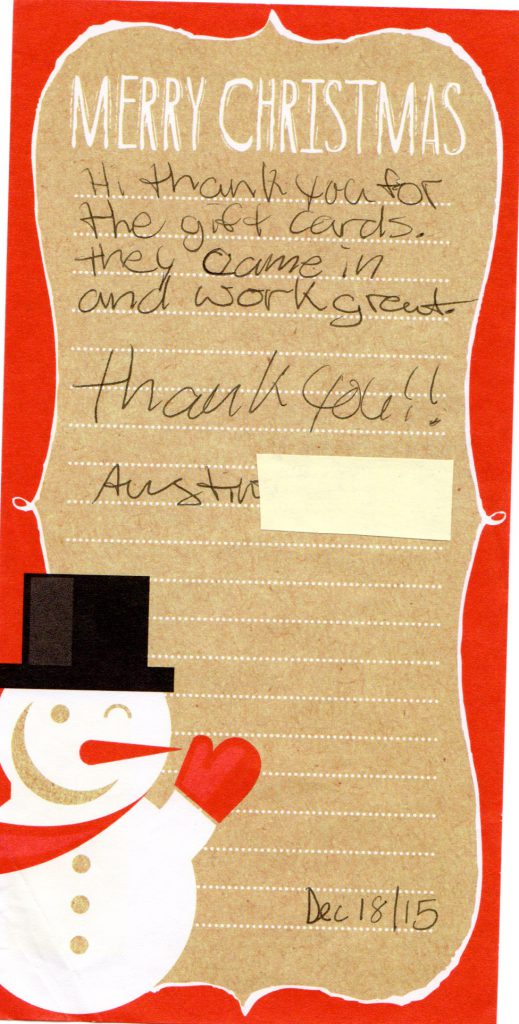 MERRY CHRISTMAS
Hi thank you for
the gift cards.
they came in
and work great.
thank you!!
Austin
Dec 18/15